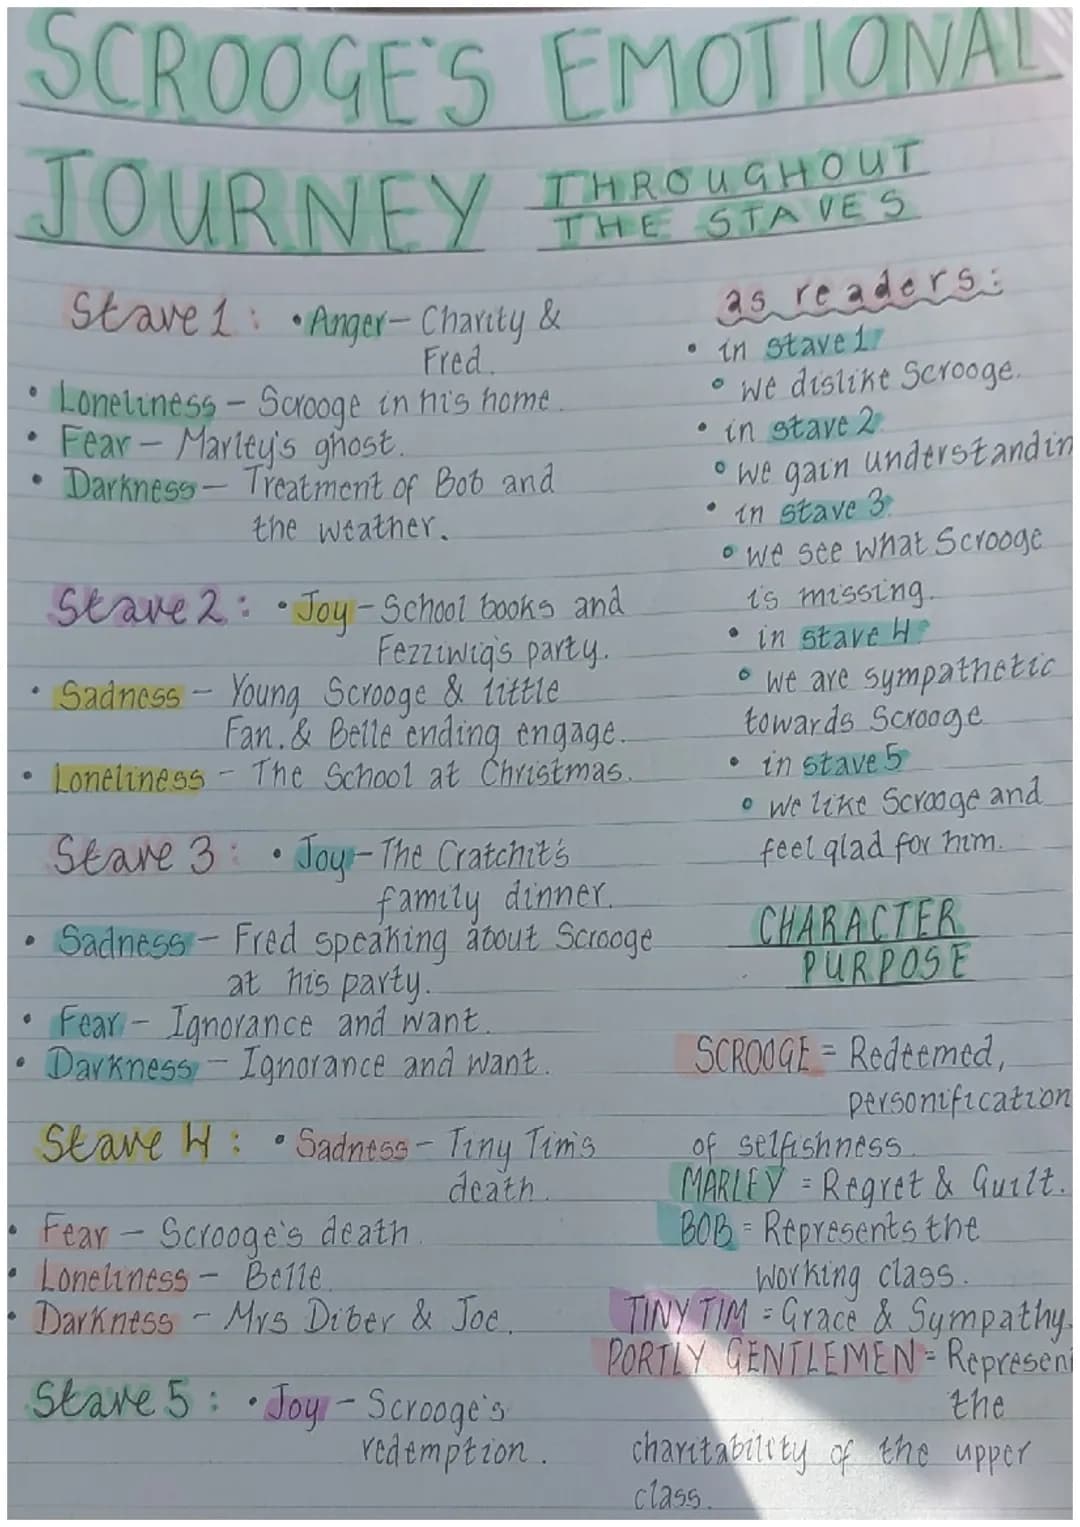 SCROOGE'S EMOTIONAL
JOURNEY THROUGHOUT
THE STAVES
Stave 1: • Anger – Charity &
Fred.
• Loneliness – Scrooge in his home.
• Fear – Marley's ghost.
• Darkness – Treatment of Bob and
the weather.
Stave 2: • Joy – School books and
Fezziwig's party.
• Sadness – Young Scrooge & little
Fan. & Belle ending engage.
• Loneliness – The School at Christmas.
Stave 3: • Joy – The Cratchit's
family dinner.
• Sadness – Fred speaking about Scrooge
at his party.
• Fear – Ignorance and want.
• Darkness – Ignorance and want.
Stave 4: • Sadness – Tiny Tim's
death.
• Fear – Scrooge's death.
• Loneliness – Belle
• Darkness – Mrs Diber & Joe.
Stave 5: • Joy – Scrooge's
redemption.
as readers:
• in stave 1:
• we dislike Scrooge.
• in stave 2:
• we gain understandin
• in stave 3:
• we see what Scrooge
is missing.
• in stave 4:
• we are sympathetic
towards Scrooge
• in stave 5
• we like Scrooge and
feel glad for him.
CHARACTER
PURPOSE
SCROOGE = Redeemed,
personification
of selfishness.
MARLEY = Regret & Guilt.
BOB = Represents the
working class.
TINY TIM = Grace & Sympathy.
PORTLY GENTLEMEN = Represen
the
charitability of the upper
class.